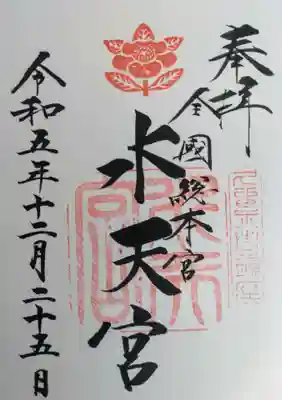 奉拝
全國総本宮
水天宮
令和五年十二月二十五日